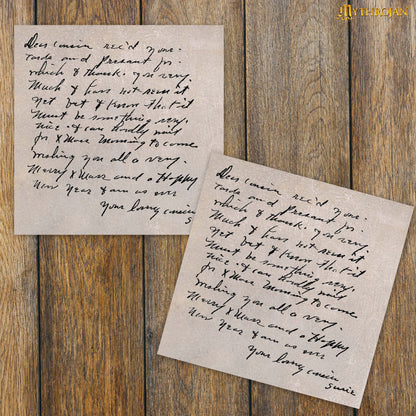 MYTHROJAN
Dear Cousin rec'd your.
Card and Present for.
which I thank. you very.
Much I have not seen it
yet but I know that it
Must be something very.
nice. I can hardly wait
for X Mass Morning to come
wishing you all a very.
Merry X Mass and a Happy
New Year I am as ever
Your loving cousin
S
Dear Cousin rec'd your.
Card and Present for.
which I thank. you very.
Much I have not seen it
yet but I know that it
Must be something very.
nice. I can hardly wait
for X Mass Morning to come
wishing you all a very.
Merry X Mass and a Happy
New Year I am as ever
Your loving cousin
Susie